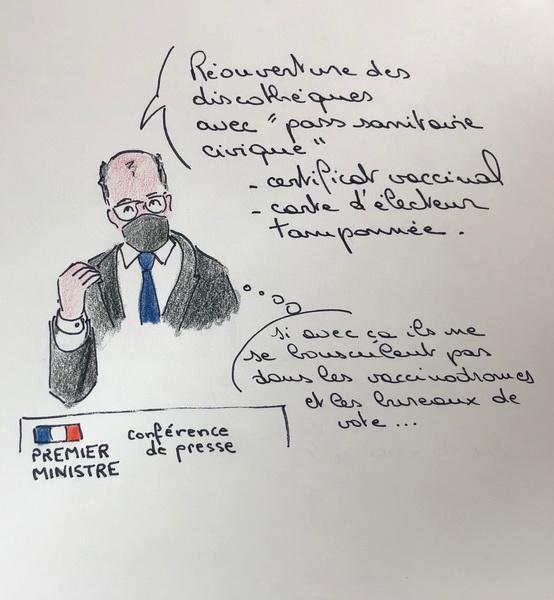 Réouverture des
discothèques
avec "pass sanitaire
civique"
- certificat vaccinal
- carte d'électeur
tamponnée.
si avec ça ils ne
se bousculent pas
dans les vaccinodromes
et les bureaux de
vote ...
PREMIER
MINISTRE
conférence
de presse